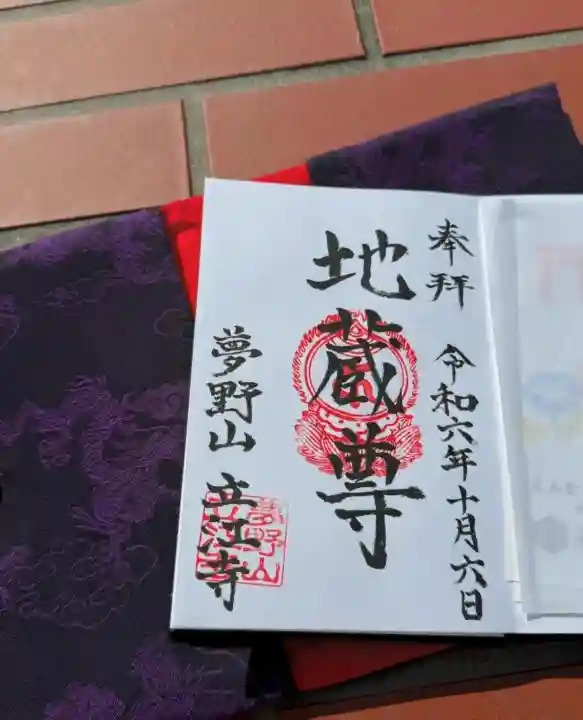 奉拝
令和六年十月六日
地蔵尊
夢野山 立江寺